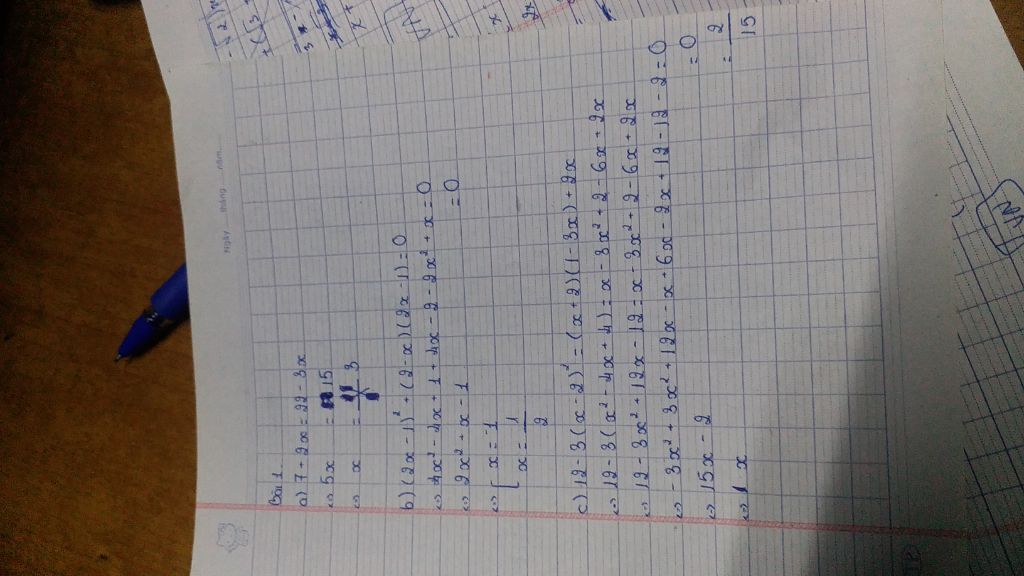 Ngày tháng năm
Bài 1
a) 7 + 2x = 22 - 3x
⇔ 5x = 15
⇔ x = 3
b) (2x - 1)² + (2 - x)(2x - 1) = 0
⇔ 4x² - 4x + 1 + 4x - 2 - 2x² + x = 0
⇔ 2x² + x - 1 = 0
⇔ [ x = -1
[ x = 1/2
c) 12 - 3(x - 2)² = (x + 2)(1 - 3x) + 2x
⇔ 12 - 3(x² - 4x + 4) = x - 3x² + 2 - 6x + 2x
⇔ 12 - 3x² + 12x - 12 = x - 3x² + 2 - 6x + 2x
⇔ - 3x² + 3x² + 12x - x + 6x - 2x + 12 - 12 - 2 = 0
⇔ 15x - 2 = 0
⇔ x = 2/15